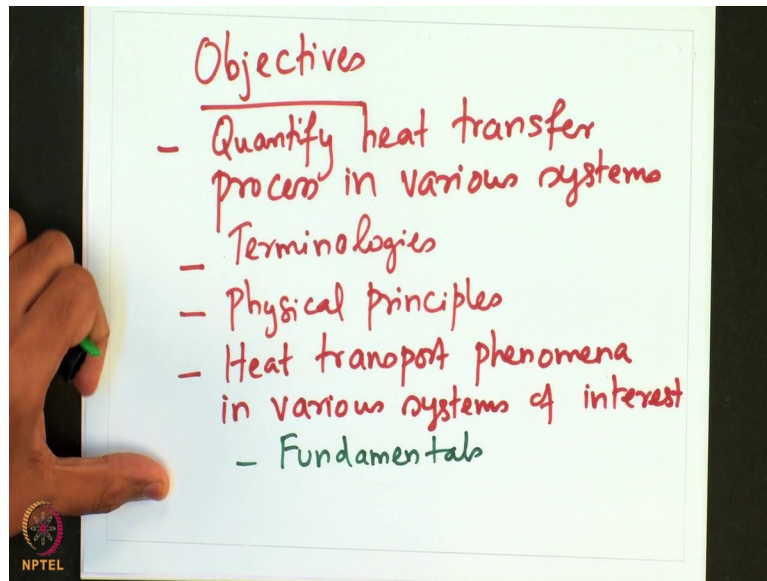 Objectives
- Quantify heat transfer
process in various systems
- Terminologies
- Physical principles
- Heat transport phenomena
in various systems of interest
- Fundamentals
NPTEL